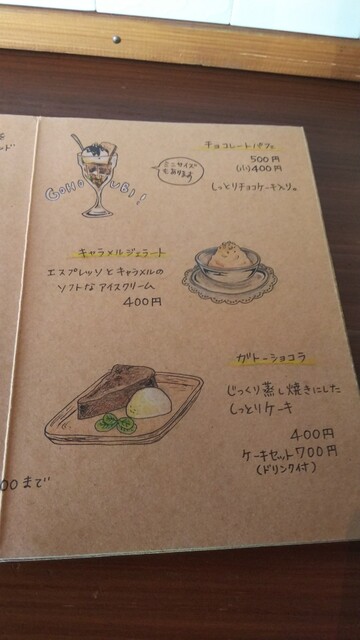 チョコレートパフェ
500円
(小)400円
しっとりチョコケーキ入り。
ミニサイズ
もあります
GOHO UBI!
キャラメルジェラート
エスプレッソとキャラメルの
ソフトなアイスクリーム
400円
ガトーショコラ
じっくり蒸し焼きにした
しっとりケーキ
400円
ケーキセット700円
(ドリンク付)
00まで